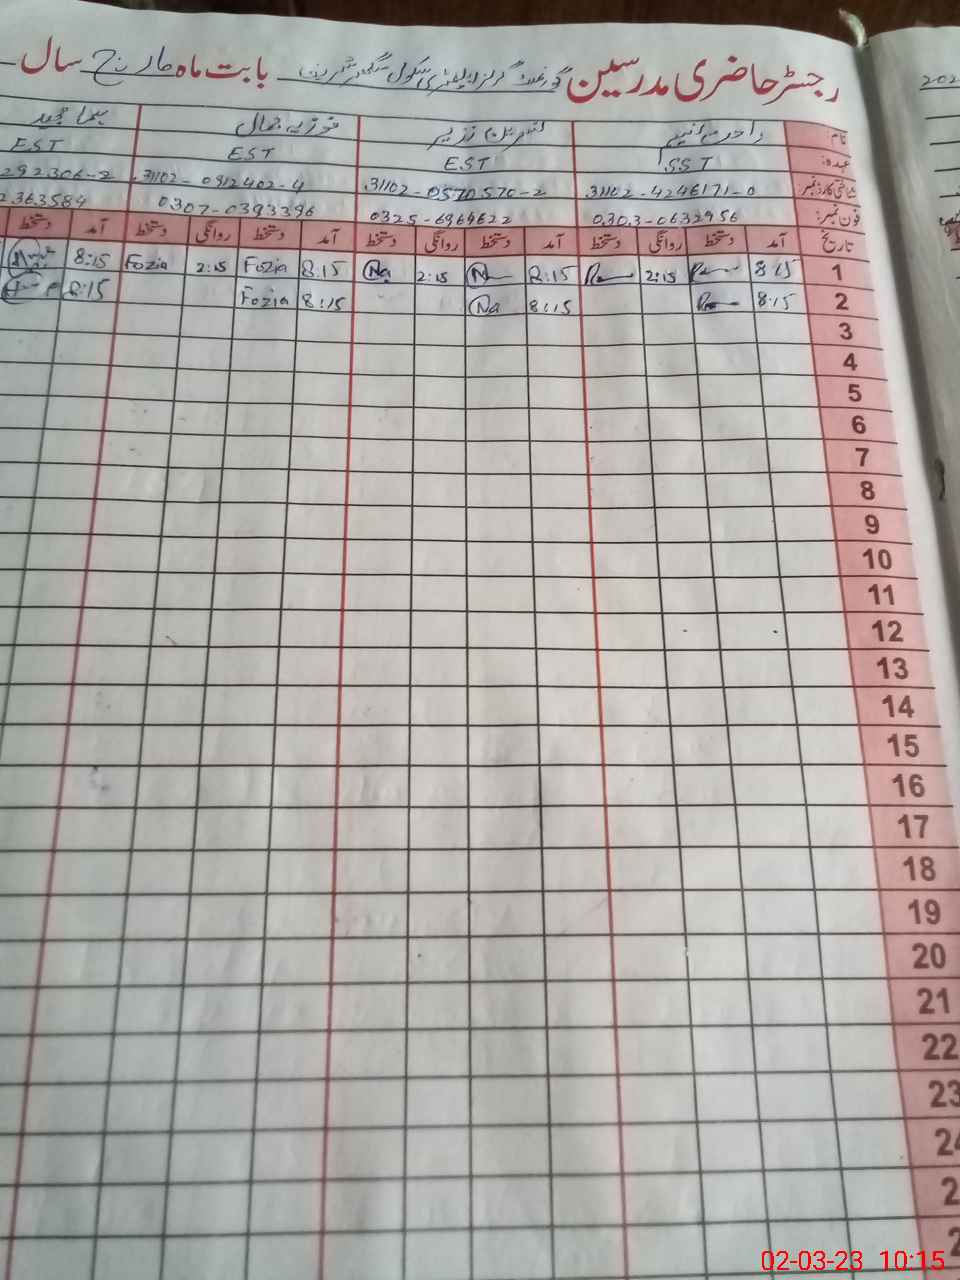 رجسٹر حاضری مدرسین گورنمنٹ گرلز ایلیمنٹری سکول بابت ماہ مارچ سال
نام: راحت فوزیہ جمال
عہدہ: SST EST EST EST
شناختی کارڈ نمبر: 31102-4246171-0 31102-0570570-2 31102-0912402-4 292306-2
فون نمبر: 0303-0632956 0325-6969622 0307-0393396 2363584
تاریخ آمد دستخط روانگی دستخط آمد دستخط روانگی دستخط آمد دستخط روانگی دستخط آمد دستخط
1 8:15 2:15 8:15 Na 2:15 Na 8:15 Fozia 2:15 Fozia 8:15
2 8:15 8:15 Na 8:15 Fozia 8:15
3
4
5
6
7
8
9
10
11
12
13
14
15
16
17
18
19
20
21
22
23
24
2
2
202
02-03-23 10:15